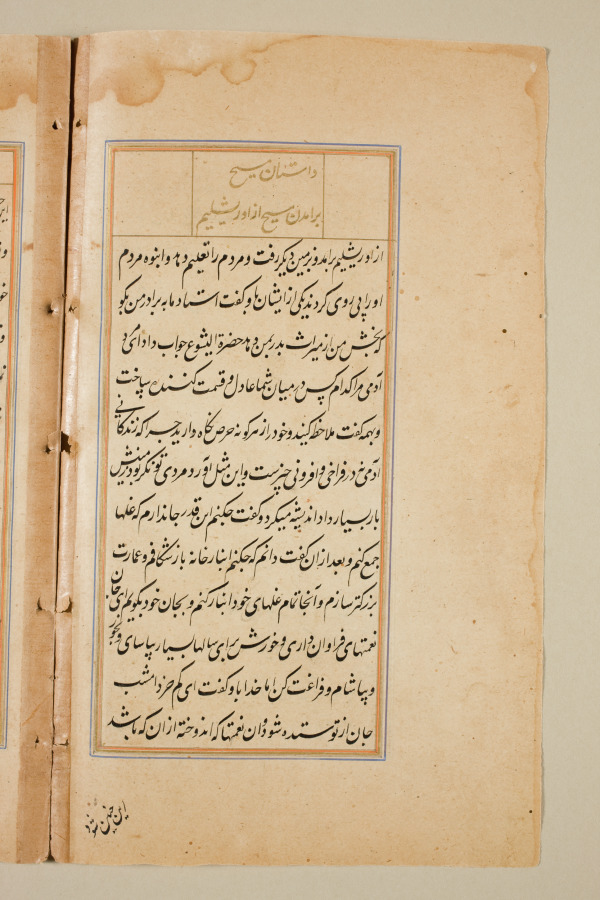 داستان مسیح
برامدن مسیح از اورشیلیم
از اورشیلیم برامد و بزمین دیگر رفت و مردم را تعلیم دهد و انبوه مردم
اورا پی روی کردند یکی از ایشان باو گفت استاد ما به برادر من بگو
که بخش من از میراث پدر بمن دهد حضرة ایشوع جواب داد ای
آدمی مرا کدام کس در میان شما عادل و قسمت کننده ساخت
وبهمه گفت ملاحظه کنید و خود را از هر گونه حرص نگاه دارید چرا که زندگانی
آدمی نه در فراخی و افزونی چیزست و این مثل آورد مردی تونگر بود زمینش
بار بسیار داد اندیشه میکرد و گفت چکنم این قدر جا ندارم که غلها
جمع کنم و بعد ازان گفت دانم که چکنم انبار خانه باز شکافم و عمارت
بزرکتر سازم و آنجا تمام غلهای خود انبار کنم و بجان خود بگویم ای جان من
نعمتهای فراوان داری و خورش برای سالها بسیار بیاسای و بخور
و بیاشام و فراغت کن اما خدا باو گفت ای کم خرد امشب
جان از تو ستده شود و ان نعمتها که اندوخته ازان که باشد
این چنین شود